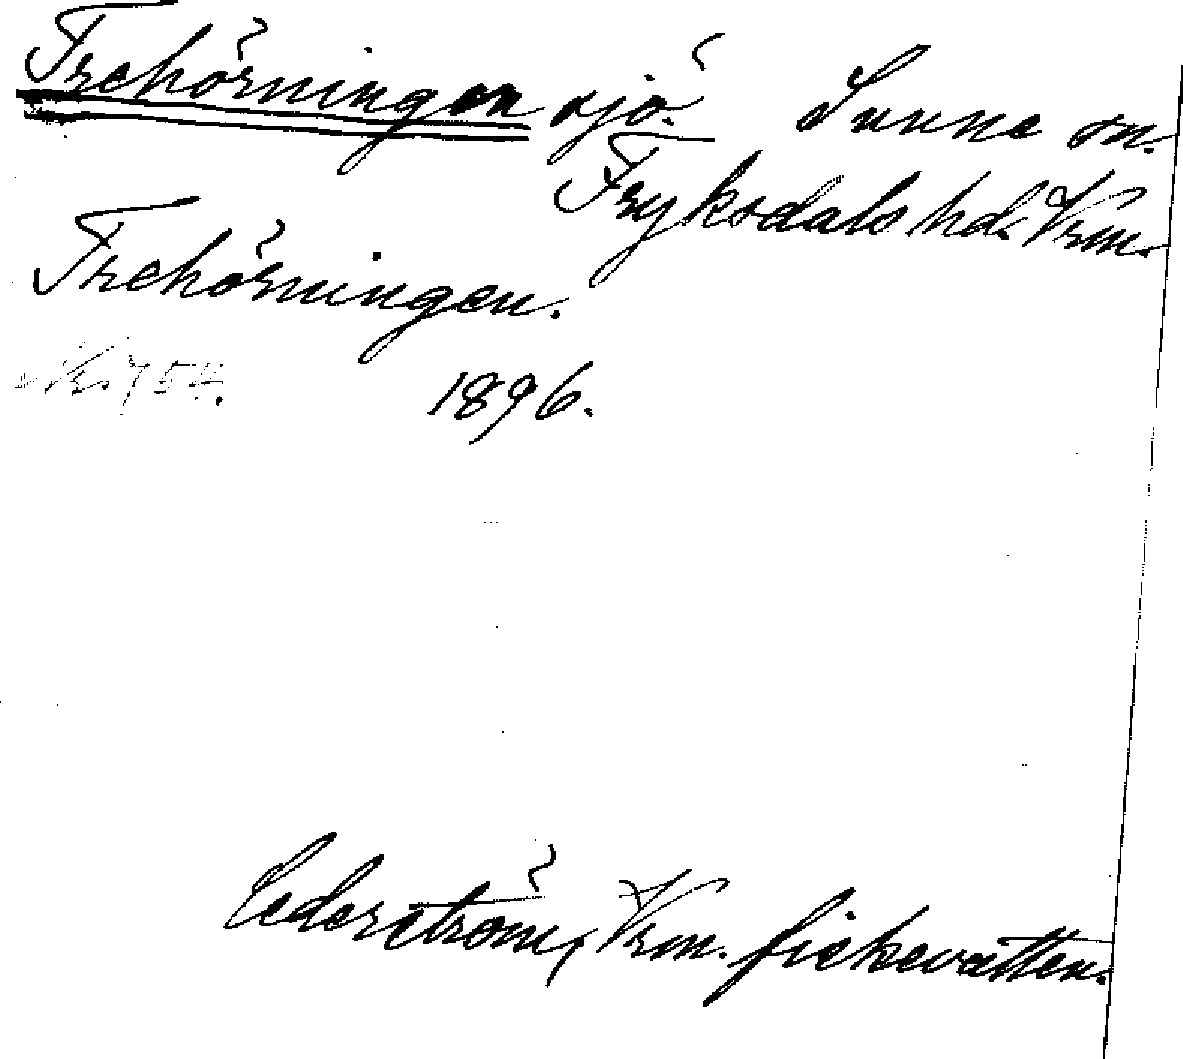 Trehörningen sjö. Sunne sn.
Fryksdals hd. Vrm.
Trehörningen.
1896.
Cederström, Vrm. fiskevatten.